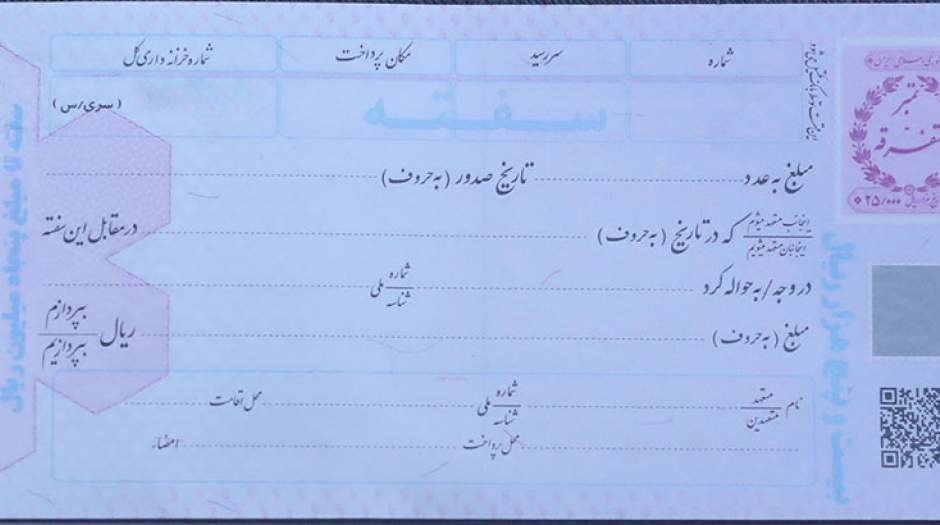 شماره
سررسید
مکان پرداخت
شماره خزانه داری کل
(سری/س)
سفته
مبلغ به عدد تاریخ صدور (به حروف)
اینجانب متعهد میشوم
اینجانبان متعهد میشویم
که در تاریخ (به حروف) در مقابل این سفته
در وجه/به حواله کرد شماره
شناسه
ملی
مبلغ (به حروف) ریال بپردازم
بپردازیم
نام متعهد
متعهدین
شماره
شناسه
ملی محل اقامت
محل پرداخت امضاء
تمبر
متفرقه
۲۵/۰۰۰
بیست و پنج هزار ریال
سفته تا مبلغ پنجاه میلیون ریال